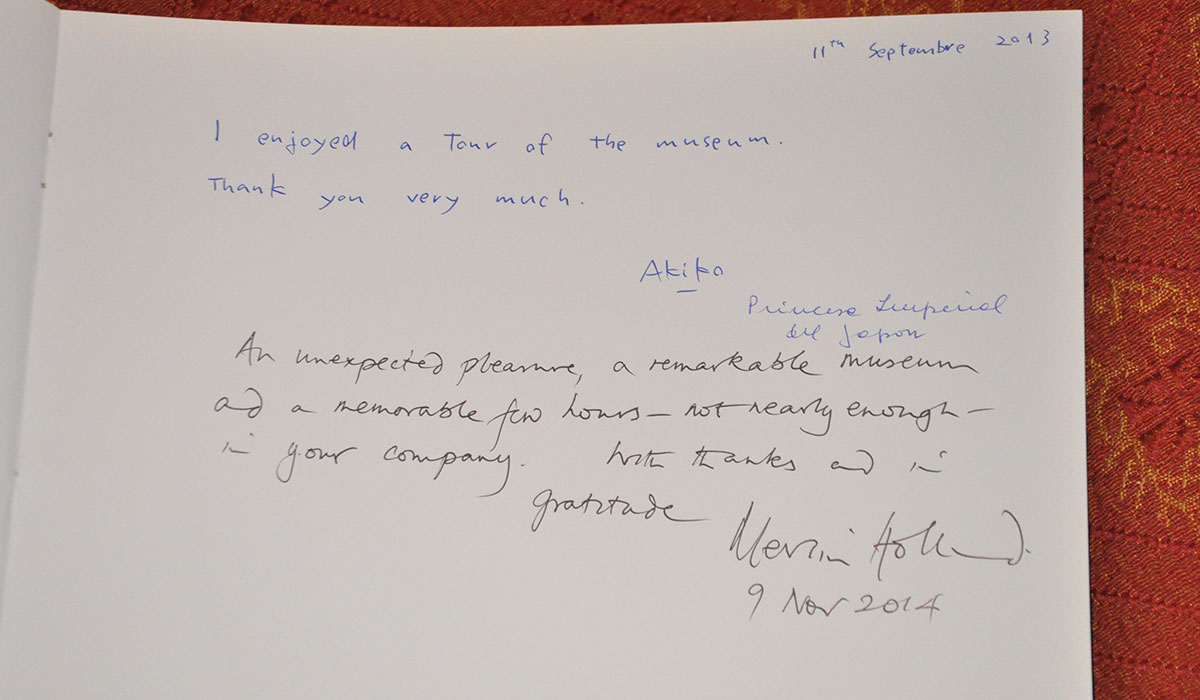 11th Septembre 2013
I enjoyed a Tour of the museum.
Thank you very much.
Akiko
Princesa Imperial
del Japon
An unexpected pleasure, a remarkable museum
and a memorable few hours – not nearly enough –
in your company. With thanks and in
gratitude
Merlin Holland.
9 Nov 2014